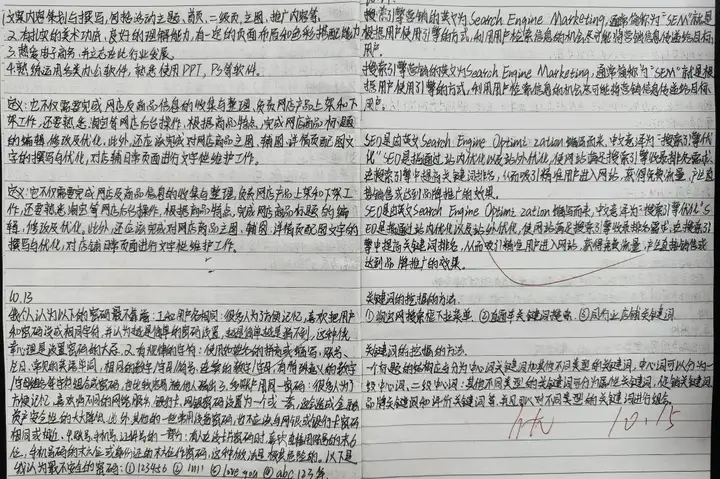 1.文案内容策划与撰写,网格活动主题、首页、二级页、主图、推广内容等。
2.有扎实的美术功底,良好的理解能力,有一定的页面布局和色彩搭配能力
3.热爱电子商务,并立志在此行业发展。
4.熟练运用各类办公软件,熟悉使用PPT,PS等软件。
定义:它不仅需要完成网店及商品信息的收集与整理,负责网店产品上架和下架
工作,还要熟悉淘宝等网店后台操作,根据商品特点,完成网店商品标题
的编辑、修改及优化。此外,还应该完成对网店商品主图、辅图、详情页配图文
字的撰写与优化,对店铺日常页面进行文字性维护工作。
定义:它不仅需要完成网店及商品信息的收集与整理,负责网店产品上架和下架
工作,还要熟悉淘宝等网店后台操作,根据商品特点,完成网店商品标题的编
辑,修改及优化。此外,还应该完成对网店商品主图、辅图、详情页配图文字的
撰写与优化,对店铺日常页面进行文字性维护工作。
10.13
我个人认为以下的密码最不靠谱:1.和用户名相同:很多人为了方便记忆,喜欢把用户
和密码设成相同字符,并认为越是简单的密码设置,越是简单越是猜不到,这种侥
幸心理是设置密码的大忌。2.有规律的字符:使用的姓名的拼音或缩写,账号、
生日、常见的英语单词,相同的数字/字母/符号,连续的数字/字母,
方便记忆,喜欢把不同的网络服务、银行卡、网银密码设置为一个或一套,
资产安全性的大大降低,此外其他的一些常用设密码,也不应该与网银或银行卡密码
相同或相近。
我认为最不安全的密码:①123456 ②1111 ③love you ④abc123等。
搜索引擎营销的英文为Search Engine Marketing,通常简称为"SEM"就是
根据用户使用引擎的方式,利用用户检索信息的机会尽可能将营销信息传递给目标
用户。
搜索引擎营销的英文为Search Engine Marketing,通常简称为"SEM"就是根
据用户使用引擎的方式,利用用户检索信息的机会尽可能将营销信息传递给目标
用户。
SEO是由英文Search Engine Optimi zation缩写而来,中文意译为"搜索引擎优
化"SEO是指通过站内优化以及站外优化,使网站满足搜索引擎收录排名需求,
在搜索引擎中提高关键词排名,从而吸引精准用户进入网站,获得免费流量,产生直
接销售或达到品牌推广的效果。
SEO是由英文Search Engine Optimi zation缩写而来,中文意译为"搜索引擎优化"S
EO是指通过站内优化以及站外优化,使网站满足搜索引擎收录排名需求,在搜索引
擎中提高关键词排名,从而吸引精准用户进入网站,获得免费流量,产生直接销售或
达到品牌推广的效果。
关键词的挖掘的方法:
①淘宝网搜索框下拉菜单 ②直通车关键词搜索 ③同行业店铺关键词
关键词的挖掘的方法:
一个标题的结构应当分为中心词关键词和其他不同类型的关键词,中心词可以分为一
级中心词,二级中心词:其他不同类型的关键词可分为属性关键词,促销关键词,
品牌关键词和评价关键词等,并且可以对不同类型的关键词进行组合。
10.15